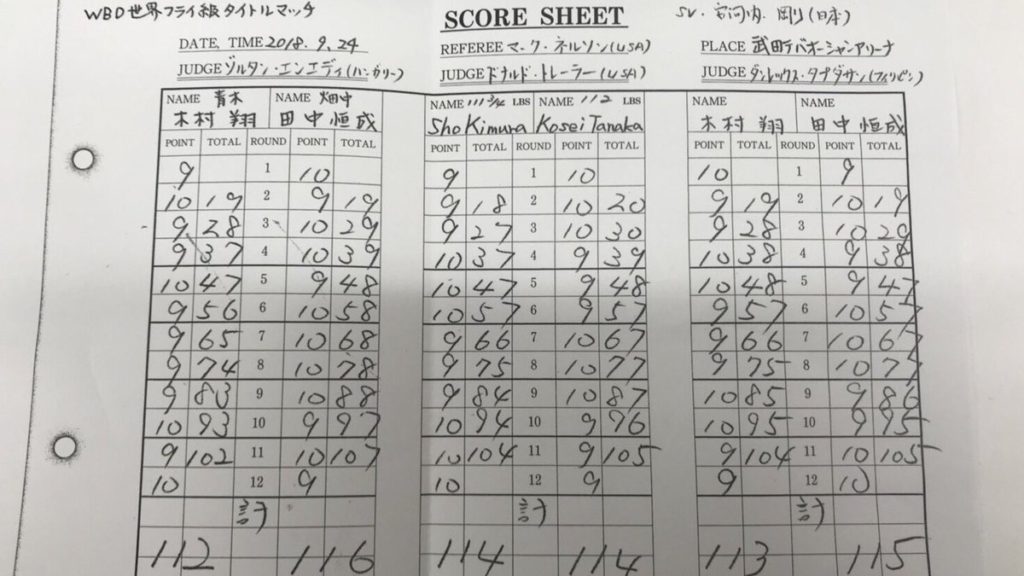 WBO世界フライ級タイトルマッチ
SCORE SHEET
SV. 安河内 剛(日本)
DATE, TIME 2018. 9. 24
REFEREE マーク・ネルソン(USA)
PLACE 武田テバオーシャンアリーナ
JUDGE ゾルタン・エンエディ(ハンガリー)
JUDGE ドナルド・トレーラー(USA)
JUDGE ダンレックス・タプダサン(フィリピン)
NAME 青木 NAME 畑中
木村 翔 田中 恒成
POINT TOTAL ROUND POINT TOTAL
9 1 10
10 19 2 9 19
9 28 3 10 29
9 37 4 10 39
10 47 5 9 48
9 56 6 10 58
9 65 7 10 68
9 74 8 10 78
9 83 9 10 88
10 93 10 9 97
9 102 11 10 107
10 12 9
計
112 116
NAME 111 3/4 LBS NAME 112 LBS
Sho Kimura Kosei Tanaka
POINT TOTAL ROUND POINT TOTAL
9 1 10
9 18 2 10 20
9 27 3 10 30
10 37 4 9 39
10 47 5 9 48
10 57 6 9 57
9 66 7 10 67
9 75 8 10 77
9 84 9 10 87
10 94 10 9 96
10 104 11 9 105
10 12 9
計
114 114
NAME NAME
木村 翔 田中 恒成
POINT TOTAL ROUND POINT TOTAL
10 1 9
9 19 2 10 19
9 28 3 10 29
10 38 4 9 38
10 48 5 9 47
9 57 6 10 57
9 66 7 10 67
9 75 8 10 77
10 85 9 9 86
10 95 10 9 95
9 104 11 10 105
9 12 10
計
113 115